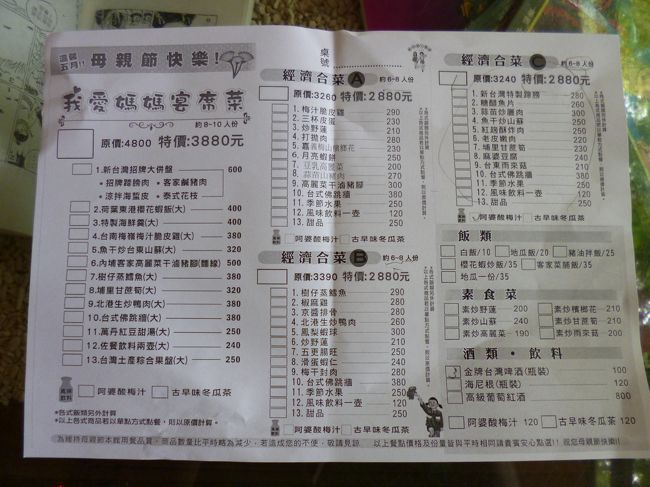 溫馨五月!! 母親節快樂!
我愛媽媽宴席菜
約8-10人份
原價:4800 特價:3880元
1.新台灣招牌大併盤 600
•招牌蹄膀肉 •客家鹹豬肉
•涼拌海蜇皮 •泰式花枝
2.荷葉東港櫻花蝦飯(大) 400
3.特製海鮮羹(大) 400
4.台南梅嶺梅汁脆皮雞(大) 380
5.魚干炒台東山蘇(大) 240
6.內埔客家高麗菜干滷豬腳(麵線) 500
7.樹仔蒸鱈魚(大) 380
8.埔里甘蔗筍(大) 320
9.北港生炒鴨肉(大) 380
10.台式佛跳牆(大) 380
11.萬丹紅豆甜湯(大) 250
12.佐餐飲料兩壺(大) 240
13.台灣土產綜合果盤(大) 250
阿婆酸梅汁 古早味冬瓜茶
*各式飯類另外計算
*以上各式商品若以單點方式點餐，則以原價計算。
桌號
經濟合菜A 約6-8人份
原價:3260 特價:2880元
1. 梅汁脆皮雞 290
2. 三杯皮蛋 230
3. 炒野蓮 210
4. 打拋肉 280
6. 月亮蝦餅 250
7. 豆乳高麗菜 200
9. 高麗菜干滷豬腳 300
10. 台式佛跳牆 380
11. 季節水果 250
12. 風味飲料一壺 120
13. 甜品 250
阿婆酸梅汁 古早味冬瓜茶
經濟合菜B 約6-8人份
原價:3390 特價:2880元
1. 樹仔蒸鱈魚 290
2. 椒麻雞 280
3. 京醬排骨 280
4. 北港生炒鴨肉 260
5. 鳳梨蝦球 300
6. 炒野蓮 210
7. 五更腸旺 250
8. 滑蛋蝦仁 240
9. 梅干封肉 280
10. 台式佛跳牆 380
11. 季節水果 250
12. 風味飲料一壺 120
13. 甜品 250
阿婆酸梅汁 古早味冬瓜茶
經濟合菜C 約6-8人份
原價:3240 特價:2880元
1. 新台灣特製蹄膀 280
2. 糖醋魚片 260
3. 蒜苗炒鹹肉 300
4. 魚干炒山蘇 250
5. 紅糟酥炸肉 250
6. 老皮嫩肉 220
7. 埔里甘蔗筍 210
8. 麻婆豆腐 240
9. 台東雨來菇 210
10. 台式佛跳牆 380
11. 季節水果 250
12. 風味飲料一壺 120
13. 甜品 250
阿婆酸梅汁 古早味冬瓜茶
飯類
白飯/10 地瓜飯/20 豬油拌飯/25
櫻花蝦炒飯/35 客家菜脯飯/35
地瓜一份/35
素食菜
素炒野蓮 200 素炒檳榔花 210
素炒山蘇 240 素炒甘蔗筍 210
素炒高麗菜 200 素炒雨來菇 200
酒類•飲料
金牌台灣啤酒(瓶裝) 100
海尼根(瓶裝) 120
高級葡萄紅酒 800
阿婆酸梅汁 120 古早味冬瓜茶 120
為維持母親節本館用餐品質，商品數量比平時略為減少，若造成您的不便，敬請見諒 以上餐點價格及份量皆與平時相同請貴賓安心點選!! 祝您母親節快樂!!